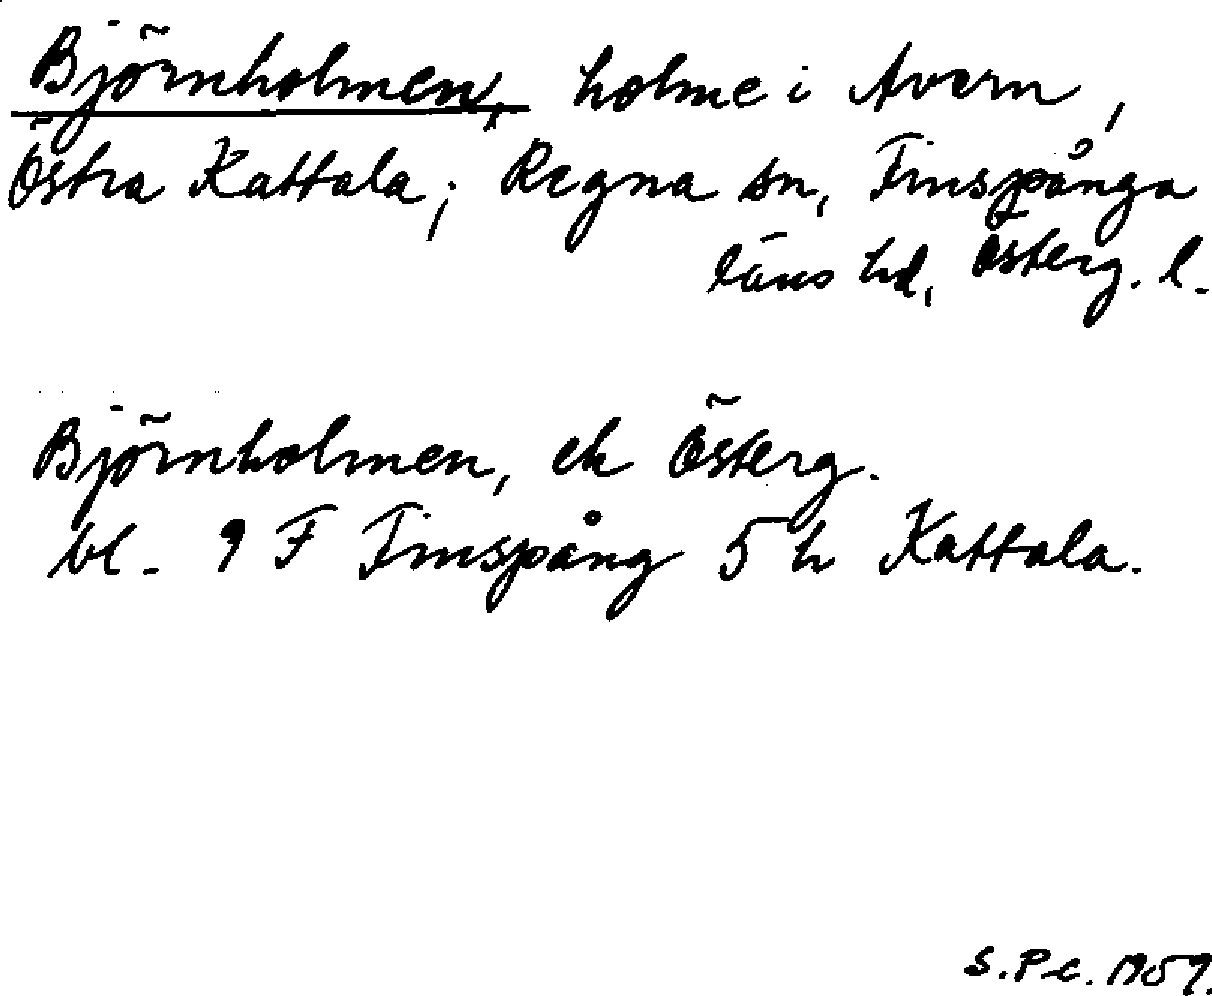 Björnholmen, holme i Avern,
Östra Kattala; Regna sn, Finspånga
läns hd, Österg. l.
Björnholmen, ek Österg.
bl. 9 F Finspång 5 h Kattala.
S.Pc. 1959.